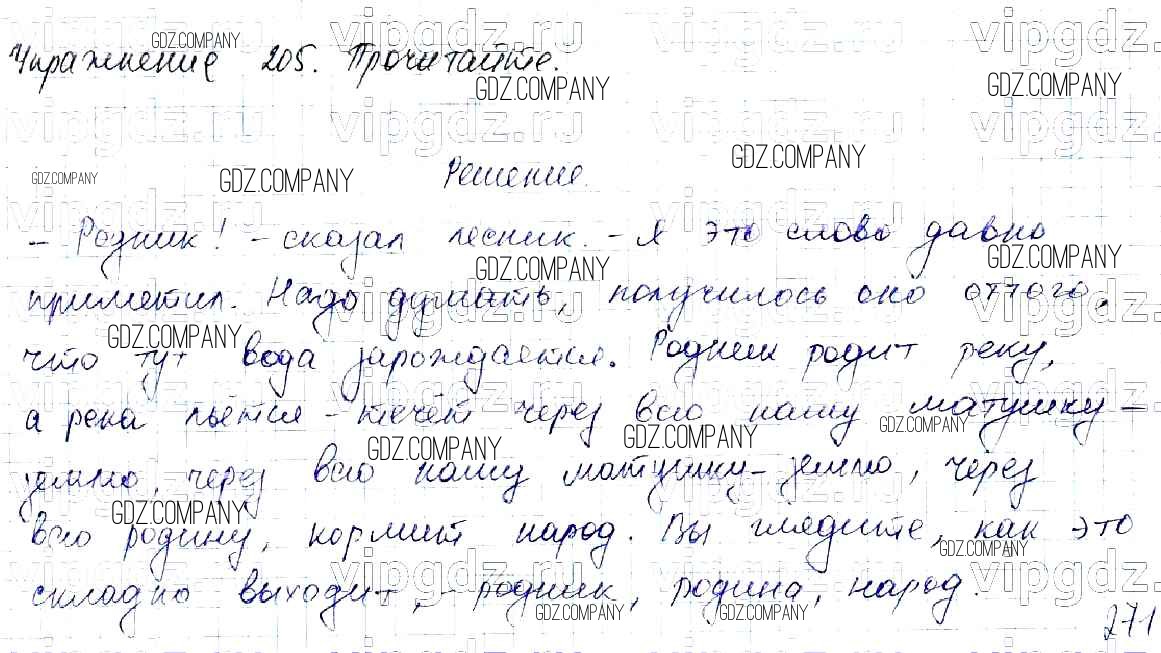 Упражнение 205. Прочитайте.
Решение.
- Родник! - сказал лесник. - Я это слово давно
приметил. Надо думать, получилось оно оттого,
что тут вода зарождается. Родник родит реку,
а река льётся - течёт через всю нашу матушку -
землю, через всю нашу матушку - землю, через
всю родину, кормит народ. Вы глядите, как это
складно выходит, - родник, родина, народ.
271
GDZ.COMPANY
vipgdz.ru